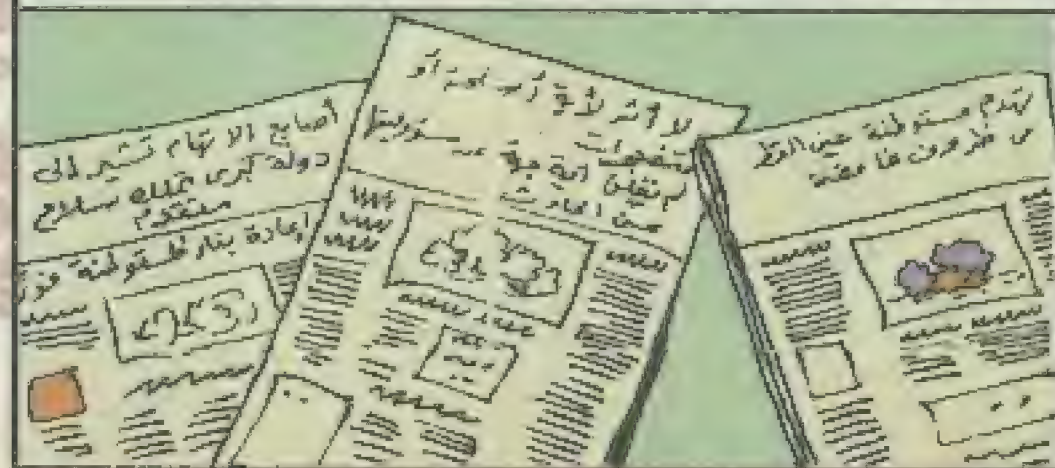 تهدم مستوطنة عين القطر
في ظروف غامضة
لا أثر لأية أسلحة أو
متفجرات
لم تعلن أية جهة عن مسئوليتها
عن الحادث
أصابع الاتهام تشير إلى
دولة كبرى تملك سلاح
متقدم
إعادة بناء المستوطنة فوراً